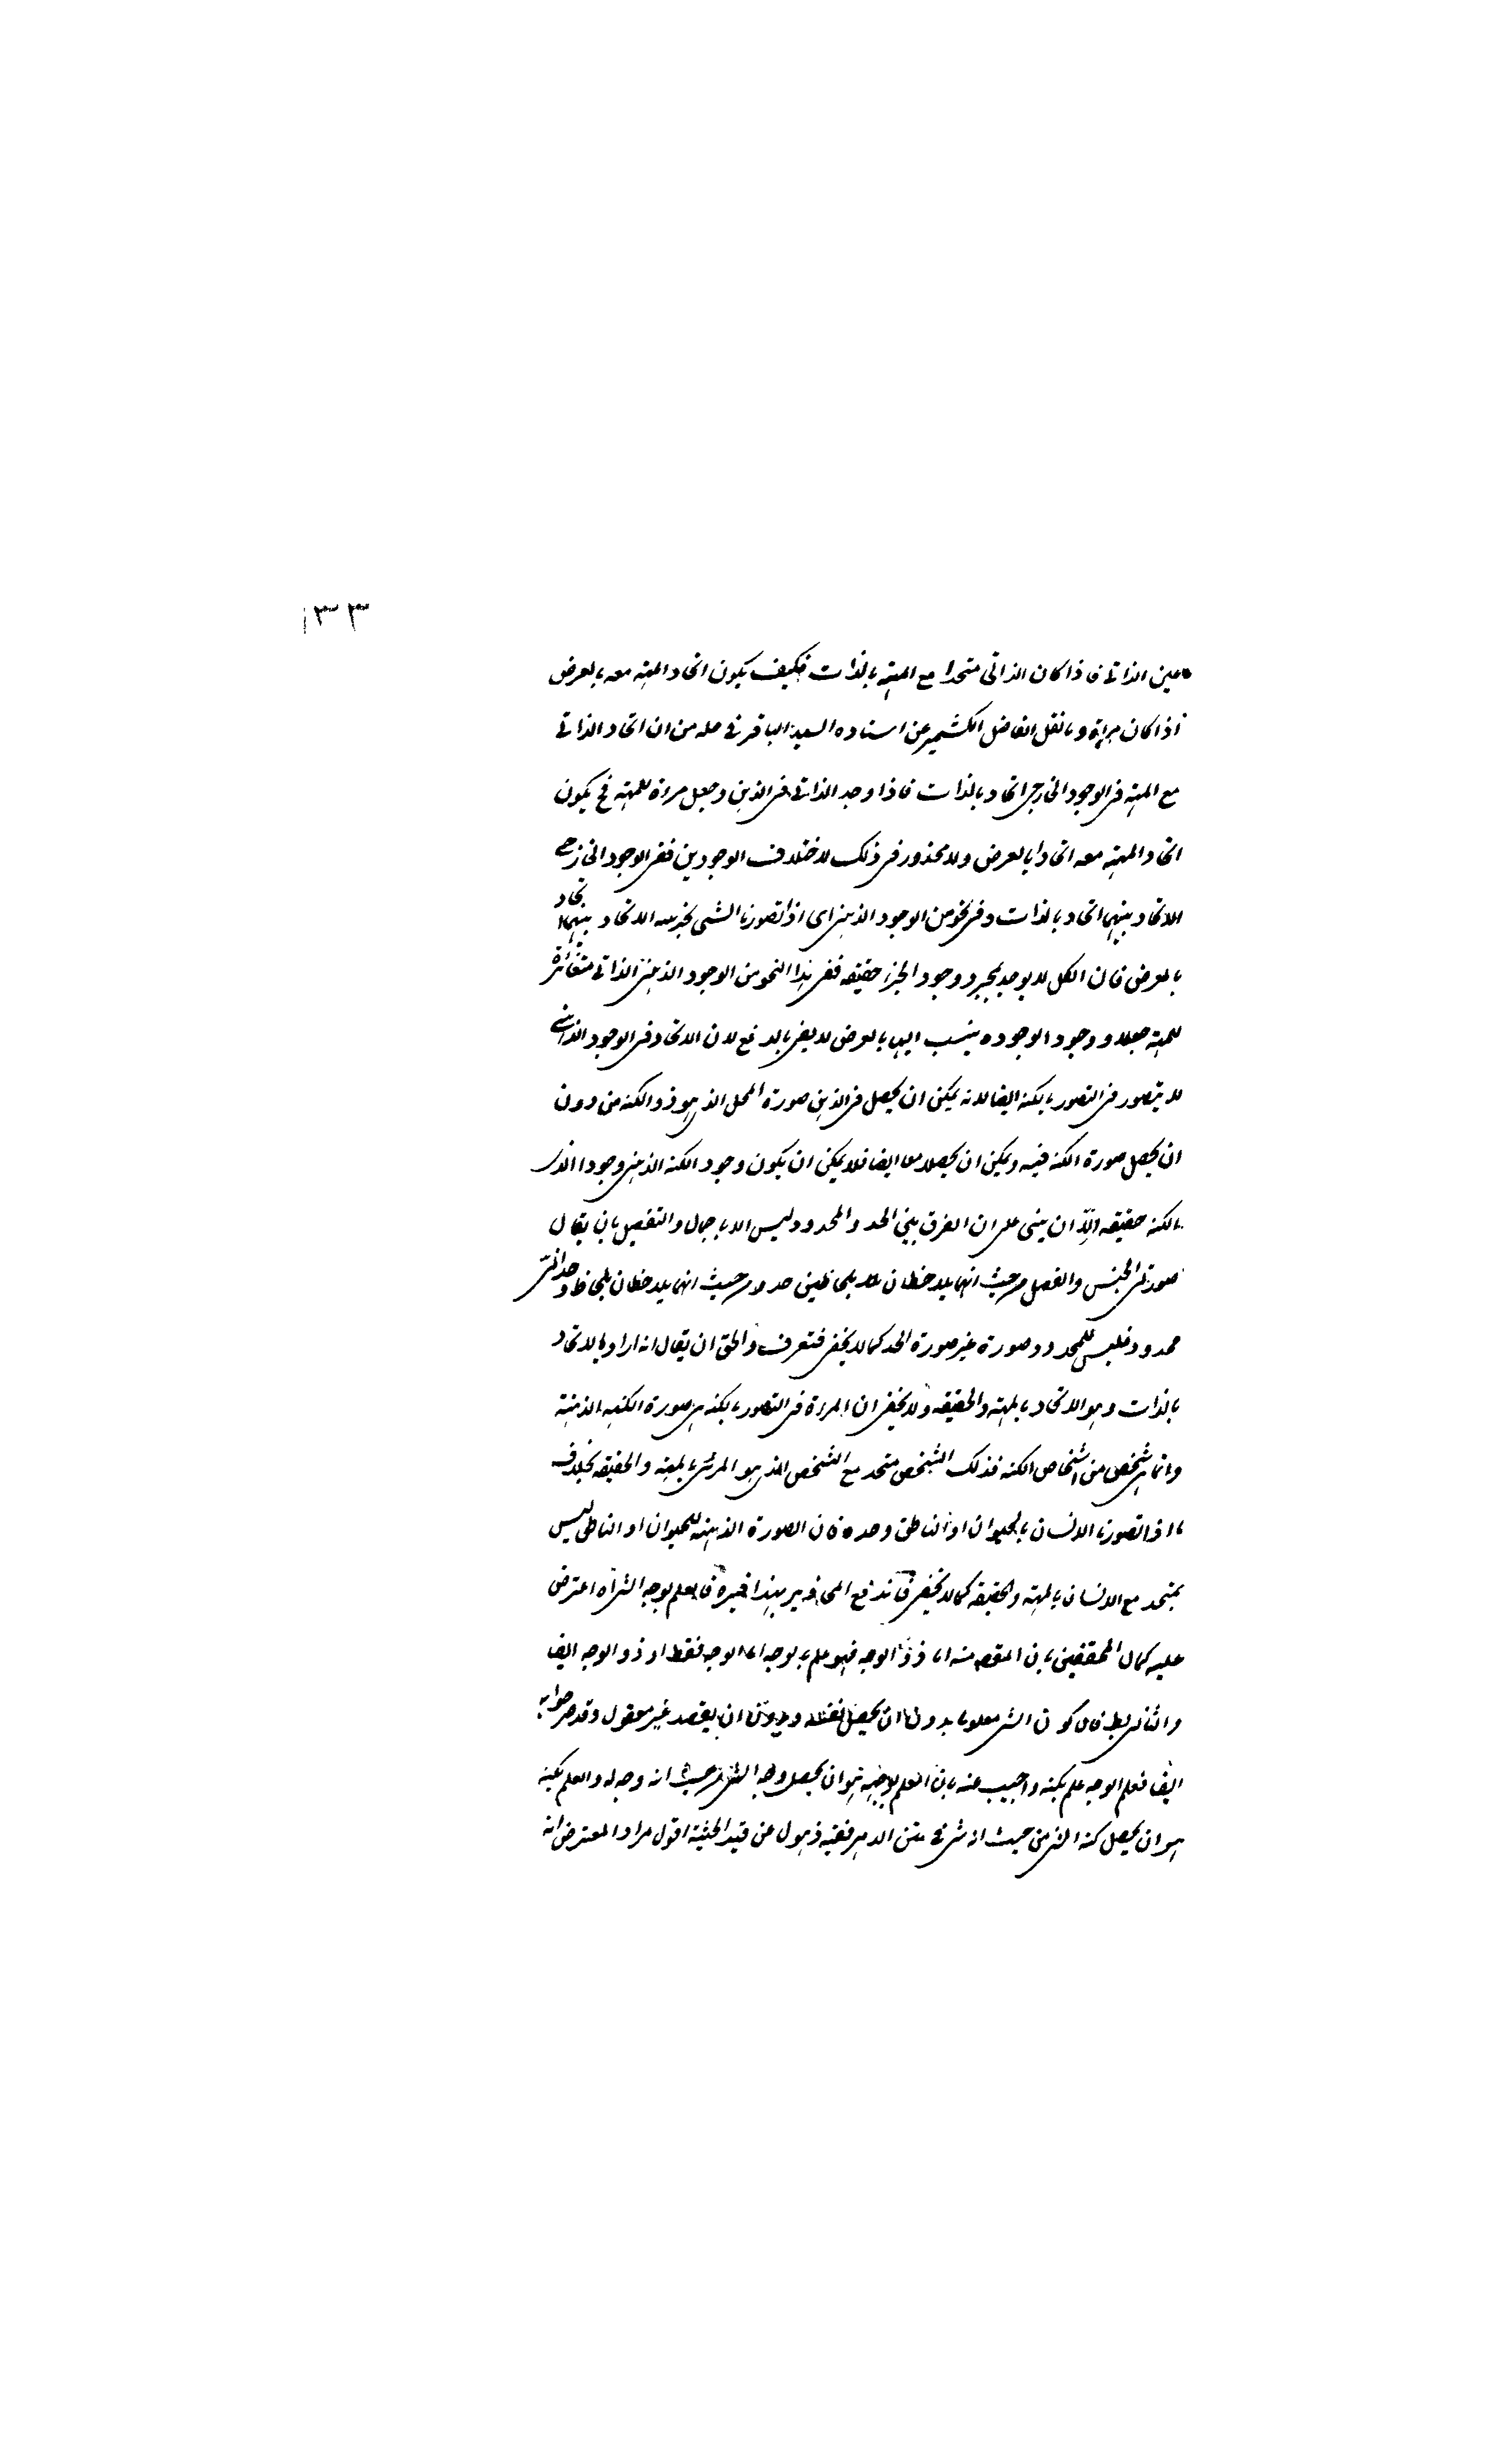 ١٣٣
عين الذاتي فاذا كان الذاتي متحدا مع المهية بالذات فكيف يكون اتحاد المهية معه بالعرض
اذا كان مراة وما نقل الفاضل الكشميري عن استاده السيد الباقر في حله من ان اتحاد الذاتي
مع المهية في الوجود الخارجي اتحاد بالذات فاذا وجد الذاتي في الذهن وجعل مراة للمهية فح يكون
اتحاد المهية معه اتحادا بالعرض ولا محذور في ذلك لاختلاف الوجودين ففي الوجود الخارجي
الاتحاد بينهما اتحاد بالذات وفي نحو من الوجود الذهني اي اذا تصورنا الشي بجزئه الاتحاد بينهما اتحاد
بالعرض فان الكل لا يوجد بمجرد وجود الجزء حقيقة ففي هذا النحو من الوجود الذهني الذاتي متغائرة
للمهية جعلا و وجود الوجوده ينسب اليها بالعرض لا يفي بالدفع لان الاتحاد في الوجود الذهني
لا يتصور في التصور بالكنه ايضا لانه يمكن ان يحصل في الذهن صورة المحل الذي هو ذو الكنه من دون
ان يحصل صورة الكنه فيه ويمكن ان يحصلا معا ايضا فلا يمكن ان يكون وجود الكنه الذهني وجودا لذي
الكنه حقيقة اللهم الا ان يبنى على ان الفرق بين الحد والمحدود ليس الا بالاجمال والتفصيل بان يقال
صورتي الجنس والفصل من حيث انهما يلاحظان بلحاظين حد ومن حيث انهما يلاحظان بلحاظ وحداني
محدود فليس للمحدود صورة غير صورة الحد كما لا يخفى فتعرف والحق ان يقال انه اراد بالاتحاد
بالذات وهو الاتحاد بالمهية والحقيقة ولا يخفى ان المراة في التصور بالكنه هي صورة الكنه الذهنية
وانما هي شخص من اشخاص الكنه فذلك الشخص متحد مع الشخص الذي هو المرئي بالمهية والحقيقة بخلاف
ما اذا تصورنا الانسان بالحيوان او الناطق وحده فان الصورة الذهنية للحيوان او الناطق ليس
بمتحد مع الانسان بالمهية والحقيقة كما لا يخفى فاندفع المحاذير بحذافيره فالعلم بوجه الشي اه اعترض
عليه كمال المحققين بان المقصود منه اما ذو الوجه فهو علم بالوجه اما الوجه فقط او ذو الوجه ايضا
والثاني بط فان كون الشي معلوما بدون ان يحصل بنفسه وبدون ان يقصد غير معقول وقد مر جوابه
ايضا فعلم الوجه علم بكنه واجيب عنه بان العلم بوجهه هو ان يحصل وجه الشي من حيث انه وجه له والعلم بكنه
هو ان يحصل كنه الشي من حيث انه شي في متن الامر ففيه ذهول عن قيد الحيثية اقول مراد المعترض انه